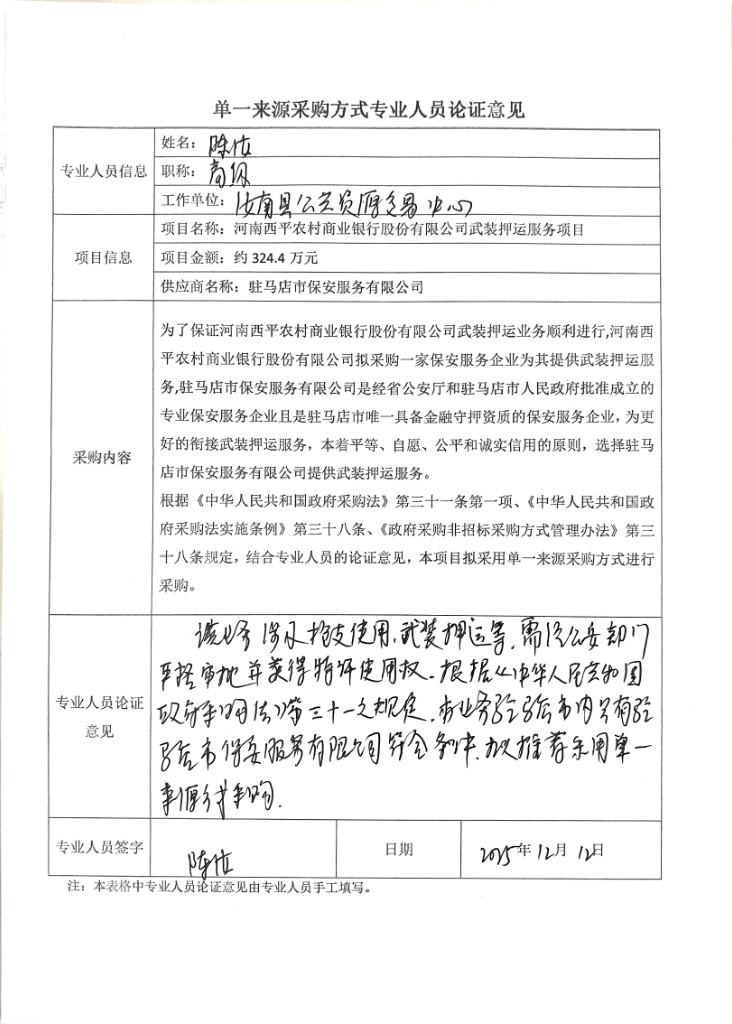 单一来源采购方式专业人员论证意见
专业人员信息
姓名：陈
职称：高级
工作单位：汝南县公共资源交易中心
项目信息
项目名称：河南西平农村商业银行股份有限公司武装押运服务项目
项目金额：约 324.4 万元
供应商名称：驻马店市保安服务有限公司
采购内容
为了保证河南西平农村商业银行股份有限公司武装押运业务顺利进行,河南西
平农村商业银行股份有限公司拟采购一家保安服务企业为其提供武装押运服
务,驻马店市保安服务有限公司是经省公安厅和驻马店市人民政府批准成立的
专业保安服务企业且是驻马店市唯一具备金融守押资质的保安服务企业，为更
好的衔接武装押运服务，本着平等、自愿、公平和诚实信用的原则，选择驻马
店市保安服务有限公司提供武装押运服务。
根据《中华人民共和国政府采购法》第三十一条第一项、《中华人民共和国政
府采购法实施条例》第三十八条、《政府采购非招标采购方式管理办法》第三
十八条规定，结合专业人员的论证意见，本项目拟采用单一来源采购方式进行
采购。
专业人员论证
意见
该业务涉及枪支使用、武装押运等，需经公安部门
严格审批并获得特许使用权。根据《中华人民共和国
政府采购法》第三十一之规定，由业务驻马店市内只有驻
马店市保安服务有限公司符合条件，为此推荐采用单一
来源方式采购。
专业人员签字
陈
日期
2025年12月12日
注：本表格中专业人员论证意见由专业人员手工填写。